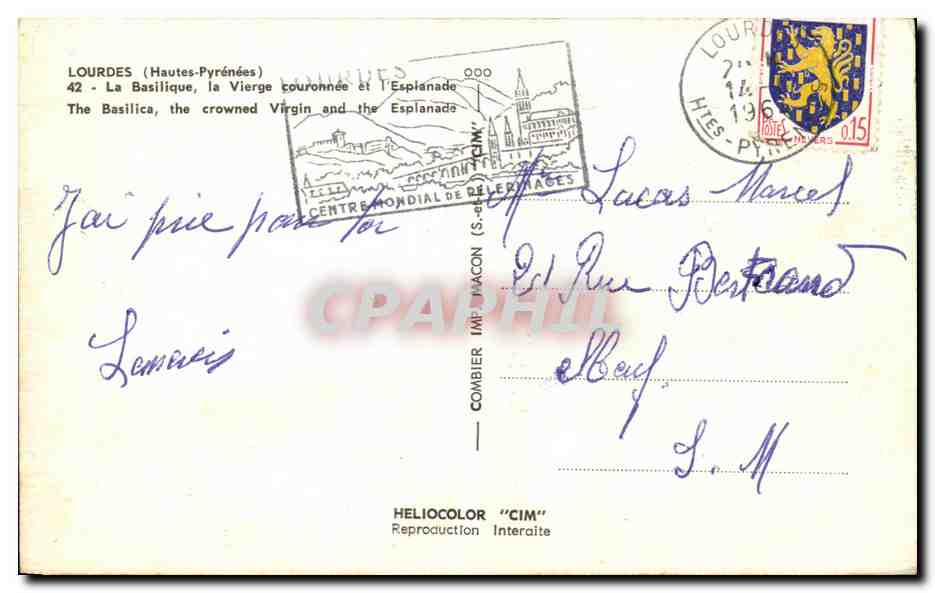 LOURDES (Hautes-Pyrénées)
42 - La Basilique, la Vierge couronnée et l'Esplanade
The Basilica, the crowned Virgin and the Esplanade
LOURDES
CENTRE MONDIAL DE PELERINAGES
LOURD
14
196
HTES - PYRE
POSTES
NEVERS
0,15
J'ai prié pour toi
COMBIER IMP. MACON "CIM"
Mr Lucas Marcel
Rue Bertrand
S. M
CPAPHIL
HELIOCOLOR "CIM"
Reproduction Interdite